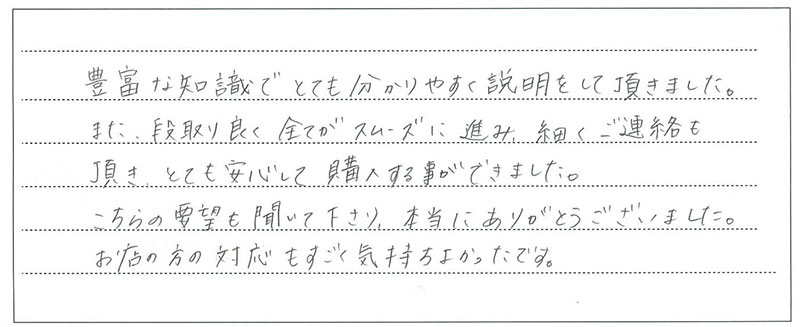 豊富な知識でとても分かりやすく説明をして頂きました。
また、段取り良く全てがスムーズに進み、細くご連絡も
頂き、とても安心して購入する事ができました。
こちらの要望も聞いて下さり、本当にありがとうございました。
お店の方の対応もすごく気持ちよかったです。